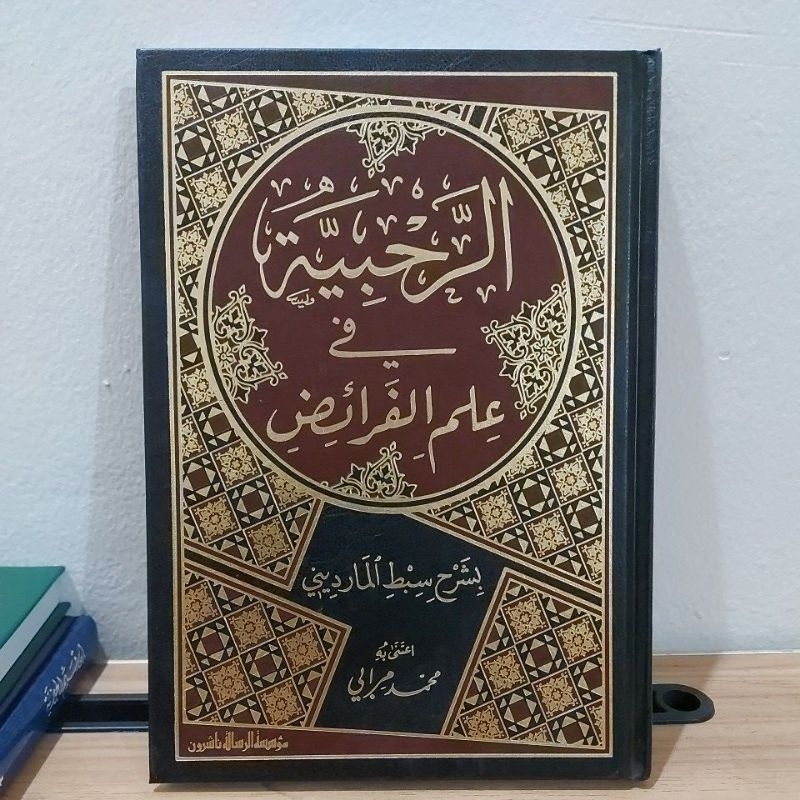 الرَّحْبِيَّةُ
في
عِلمِ الفَرائِضِ
بِشَرْحِ سِبْطِ المَارِدِيني
اعتَنىٰ بهِ
محمد مرابي
مؤسسة الرسالة ناشرون